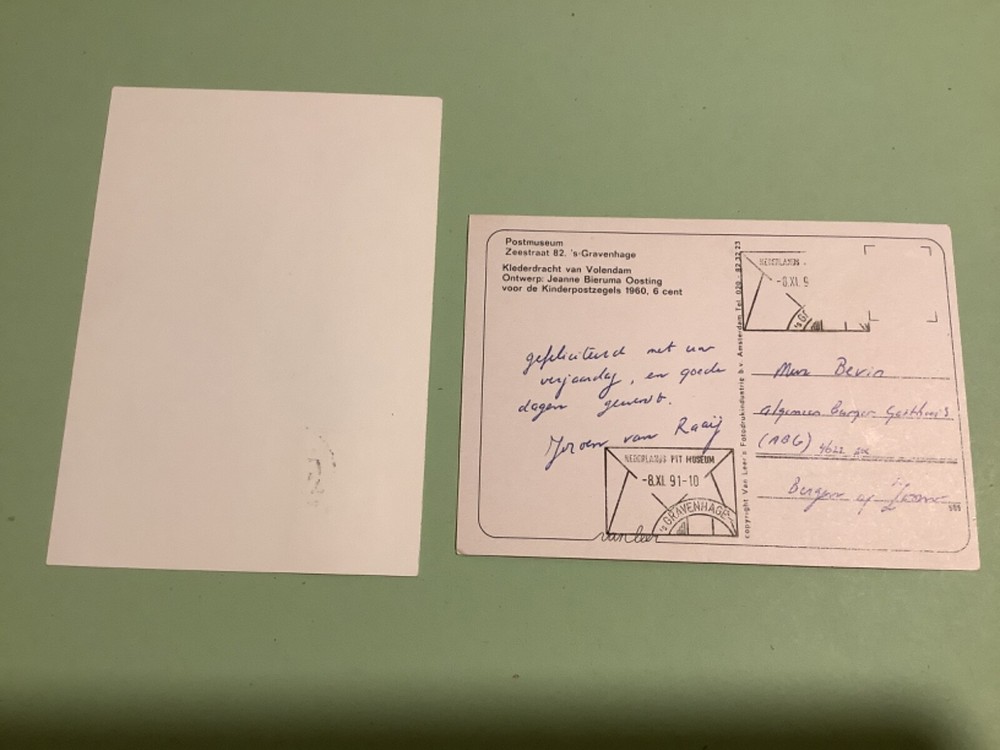 Postmuseum
Zeestraat 82. 's-Gravenhage
Klederdracht van Volendam
Ontwerp: Jeanne Bieruma Oosting
voor de Kinderpostzegels 1960, 6 cent
gefeliciteerd met uw
verjaardag, en goede
dagen gewenst.
Jeroen van Raaij
NEDERLANDS PTT MUSEUM
-8.XI.91-10
'SGRAVENHAGE
van leer
copyright Van Leer's Fotodrukindustrie b.v. Amsterdam Tel. 020 - 82 32 23
NEDERLANDS
-8.XI.9
'SG
Bevin
Algemeen Burger Gasthuis
(ABG)
Bergen op Zoom